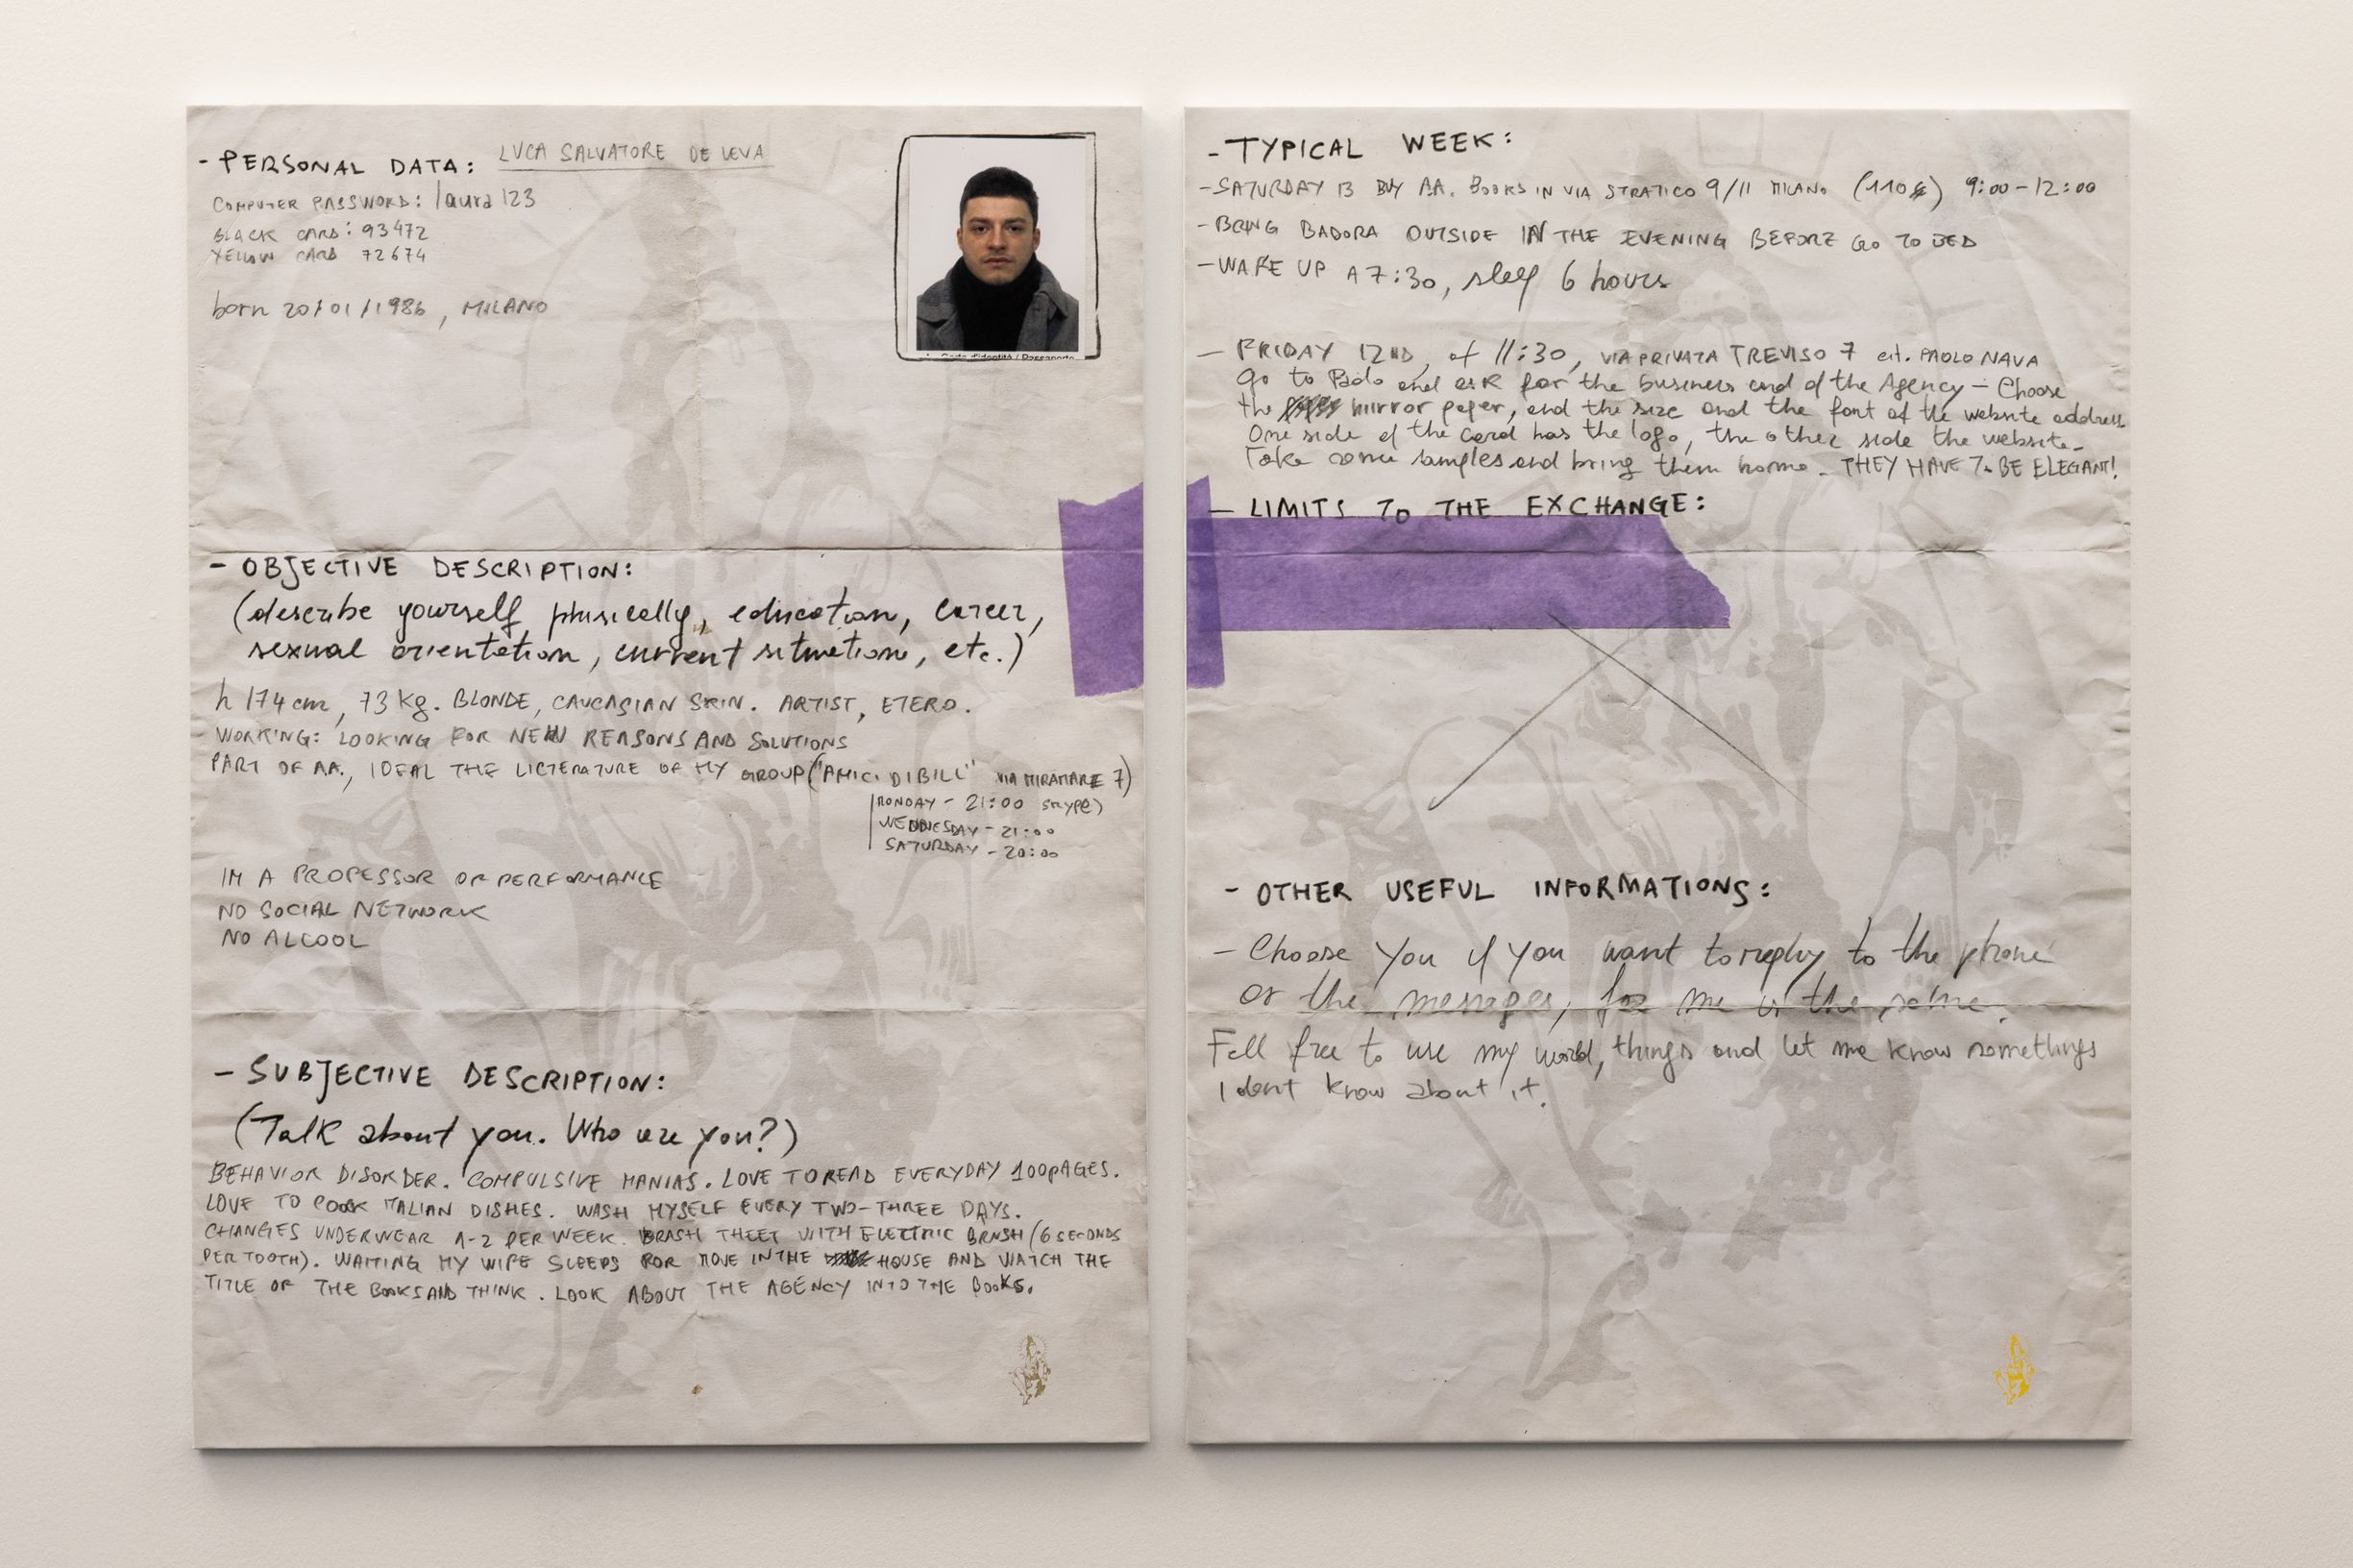 - PERSONAL DATA: LUCA SALVATORE DE LEVA
COMPUTER PASSWORD: laura123
BLACK CARD: 93472
YELLOW CARD 72674
born 20/01/1986, MILANO
- OBJECTIVE DESCRIPTION:
(describe yourself phisically, education, career,
sexual orientation, current situation, etc.)
h 174 cm, 73 Kg. BLONDE, CAUCASIAN SKIN. ARTIST, ETERO.
WORKING: LOOKING FOR NEW REASONS AND SOLUTIONS
PART OF AA., IDEAL THE LICTERATURE OF MY GROUP ("AMICI DI BILL" VIA MIRAMARE 7)
MONDAY - 21:00 SKYPE)
WEDNESDAY - 21:00
SATURDAY - 20:00
IM A PROFESSOR OF PERFORMANCE
NO SOCIAL NETWORK
NO ALCOOL
- SUBJECTIVE DESCRIPTION:
(Talk about you. Who are you?)
BEHAVIOR DISORDER. COMPULSIVE MANIAS. LOVE TO READ EVERYDAY 100 PAGES.
LOVE TO COOK ITALIAN DISHES. WASH MYSELF EVERY TWO-THREE DAYS.
CHANGES UNDERWEAR 1-2 PER WEEK. BRASH THEET WITH ELECTRIC BRUSH (6 SECONDS
PER TOOTH). WAITING MY WIFE SLEEPS FOR MOVE IN THE HOUSE AND WATCH THE
TITLE OF THE BOOKS AND THINK. LOOK ABOUT THE AGENCY INTO THE BOOKS.
- TYPICAL WEEK:
- SATURDAY 13 BUY AA. BOOKS IN VIA STRATICO 9/11 MILANO (110€) 9:00-12:00
- BRING BADORA OUTSIDE IN THE EVENING BEFORE GO TO BED
- WAKE UP A 7:30, sleep 6 hours
- FRIDAY 12ND, at 11:30, VIA PRIVATA TREVISO 7 cit. PAOLO NAVA
Go to Paolo and ask for the business card of the Agency - Choose
the mirror paper, and the size and the font of the website address
One side of the card has the logo, the other side the website.
Take some samples and bring them home. THEY HAVE TO BE ELEGANT!
- LIMITS TO THE EXCHANGE:
- OTHER USEFUL INFORMATIONS:
- Choose you if you want to reply to the phone
or the messages, for me is the same.
Fell free to use my world, things and let me know somethings
I dont know about it.